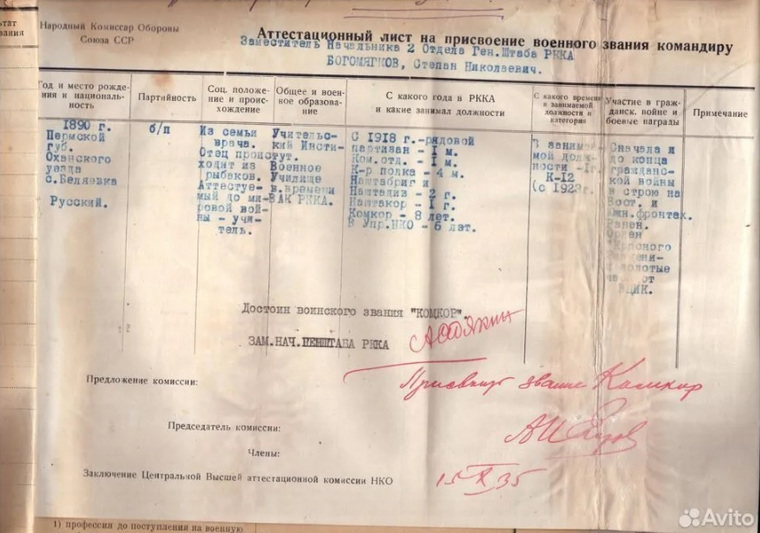 ьтат
вания
Народный Комиссар Обороны
Союза ССР
Аттестационный лист на присвоение военного звания командиру
Заместитель Начальника 2 Отдела Ген.Штаба РККА
БОГОМЯГКОВ, Степан Николаевич.
Год и место рожде-
ния и националь-
ность
Партийность
Соц. положе-
ние и проис-
хождение
Общее и воен-
ное образова-
ние
С какого года в РККА
и какие занимал должности
С какого времени
в занимаемой
должности и
категория
Участие в граж-
данск. войне и
боевые награды
Примечание
1890 г.
Пермской
губ.
Оханского
уезда
с.Беляевка
Русский.
б/п
Из семьи
врача.
Отец проист
ходит из
рыбаков.
Аттестуе-
мый до ми-
ровой вой-
ны - учи-
тель.
Учительс-
кий Инсти-
тут.
Военное
Училище
в.времени
ВАК РККА.
С 1918 г.-рядовой
партизан - 1 м.
Ком.отд. - 1 м.
К-р полка - 4 м.
Наштабриг и
Наштадив - 2 г.
Наштакор - 1 г.
Комкор - 8 лет.
В Упр.НКО - 6 лет.
В занима-
мой долж-
ности -1г.
К-12
(с 1928г.
Сначала и
до конца
граждан-
ской войны
в строю на
Вост. и
Южн.фронтах.
Ранен.
Орден
"Красного
Знамени-
и золотые
от
ВЦИК.
Достоин воинского звания "КОМКОР".
ЗАМ.НАЧ.ГЕНШТАБА РККА
Присвоить звание Комкор
Предложение комиссии:
Председатель комиссии:
Члены:
Заключение Центральной Высшей аттестационной комиссии НКО
15 X 35
1) профессия до поступления на военную
Avito